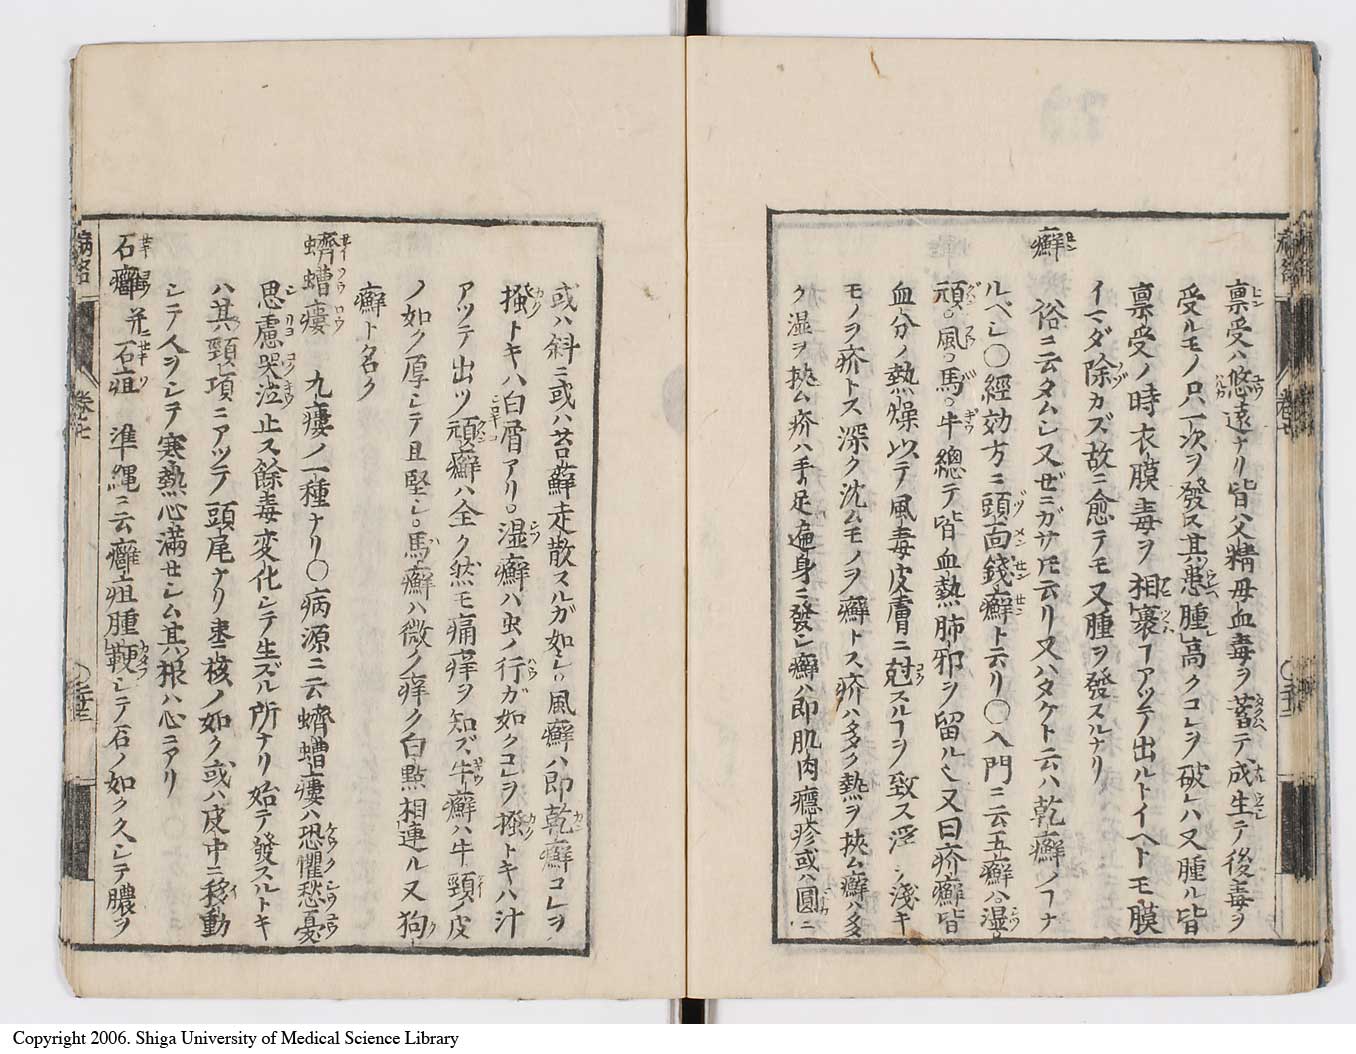 稟受ハ悠遠ナリ皆父精母血毒ヲ蓄テ成生テ後毒ヲ
受ルモノ只一次ヲ發ス其患腫高クコレヲ破レハ又腫ル皆
稟受ノ時衣膜毒ヲ相裹フアツテ出ルトイヘトモ膜
イマダ除カズ故ニ愈テモ又腫ヲ發スルナリ
癬
俗ニ云タムシ又ゼニガサモ云リ又ハタケト云ハ乾癬ノフナ
ルベシ〇經効方ニ頭面錢癬ト云リ〇入門ニ云五癬ハ湿
頑風馬牛總テ皆血熱肺邪ヲ留ル又曰疥癬皆
血分ノ熱燥以テ風毒皮膚ニ尅スルフヲ致ス浮ノ淺キ
モノヲ疥トス深ク沈ムモノヲ癬トス疥ハ多ク熱ヲ挾ム癬ハ多
ク湿ヲ挾ム疥ハ手足遍身ニ發シ癬ハ即肌肉癮疹或ハ圓ニ
或ハ斜ニ或ハ苔蘚走散スルガ如シ風癬ハ即乾癬コレヲ
搔トキハ白屑アリ湿癬ハ虫ノ行ガ如クコレヲ搔トキハ汁
アツテ出ツ頑癬ハ全ク然モ痛痒ヲ知ズ牛癬ハ牛頸ノ皮
ノ如ク厚シテ且堅シ馬癬ハ微ノ痒ク白點相連ル又狗
癬ト名ク
蠐螬瘻 九瘻ノ一種ナリ〇病源ニ云蠐螬瘻ハ恐懼愁憂
思慮哭泣止ス餘毒変化シテ生ズル所ナリ始テ發スルトキ
ハ其頸項ニアツテ頭尾ナリ棗核ノ如ク或ハ皮中ニ移動
シテ人ヲシテ寒熱心滿セシム其根ハ心ニアリ
石癰 并石疽 準縄ニ云癰疽腫鞕シテ石ノ如ク久シテ膿ヲ
病名
巻之七
〇二十三
Copyright 2006. Shiga University of Medical Science Library